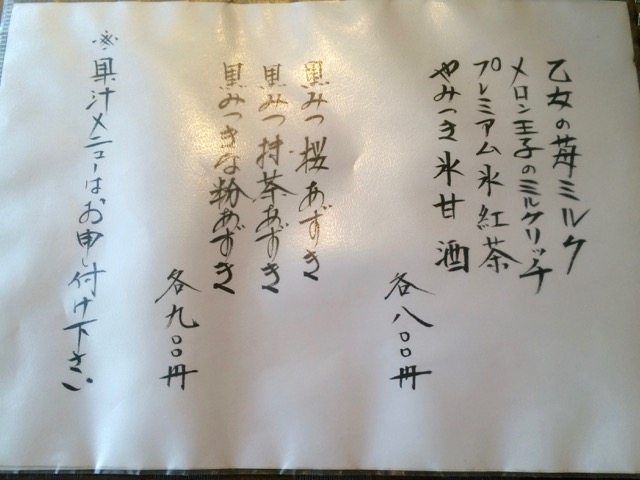 乙女の苺ミルク
メロン王子のミルクリッチ
プレミアム氷紅茶
やみつき氷甘酒
各八〇〇円
黒みつ桜あずき
黒みつ抹茶あずき
黒みつきな粉あずき
各九〇〇円
※具汁メニューはお申し付け下さい。